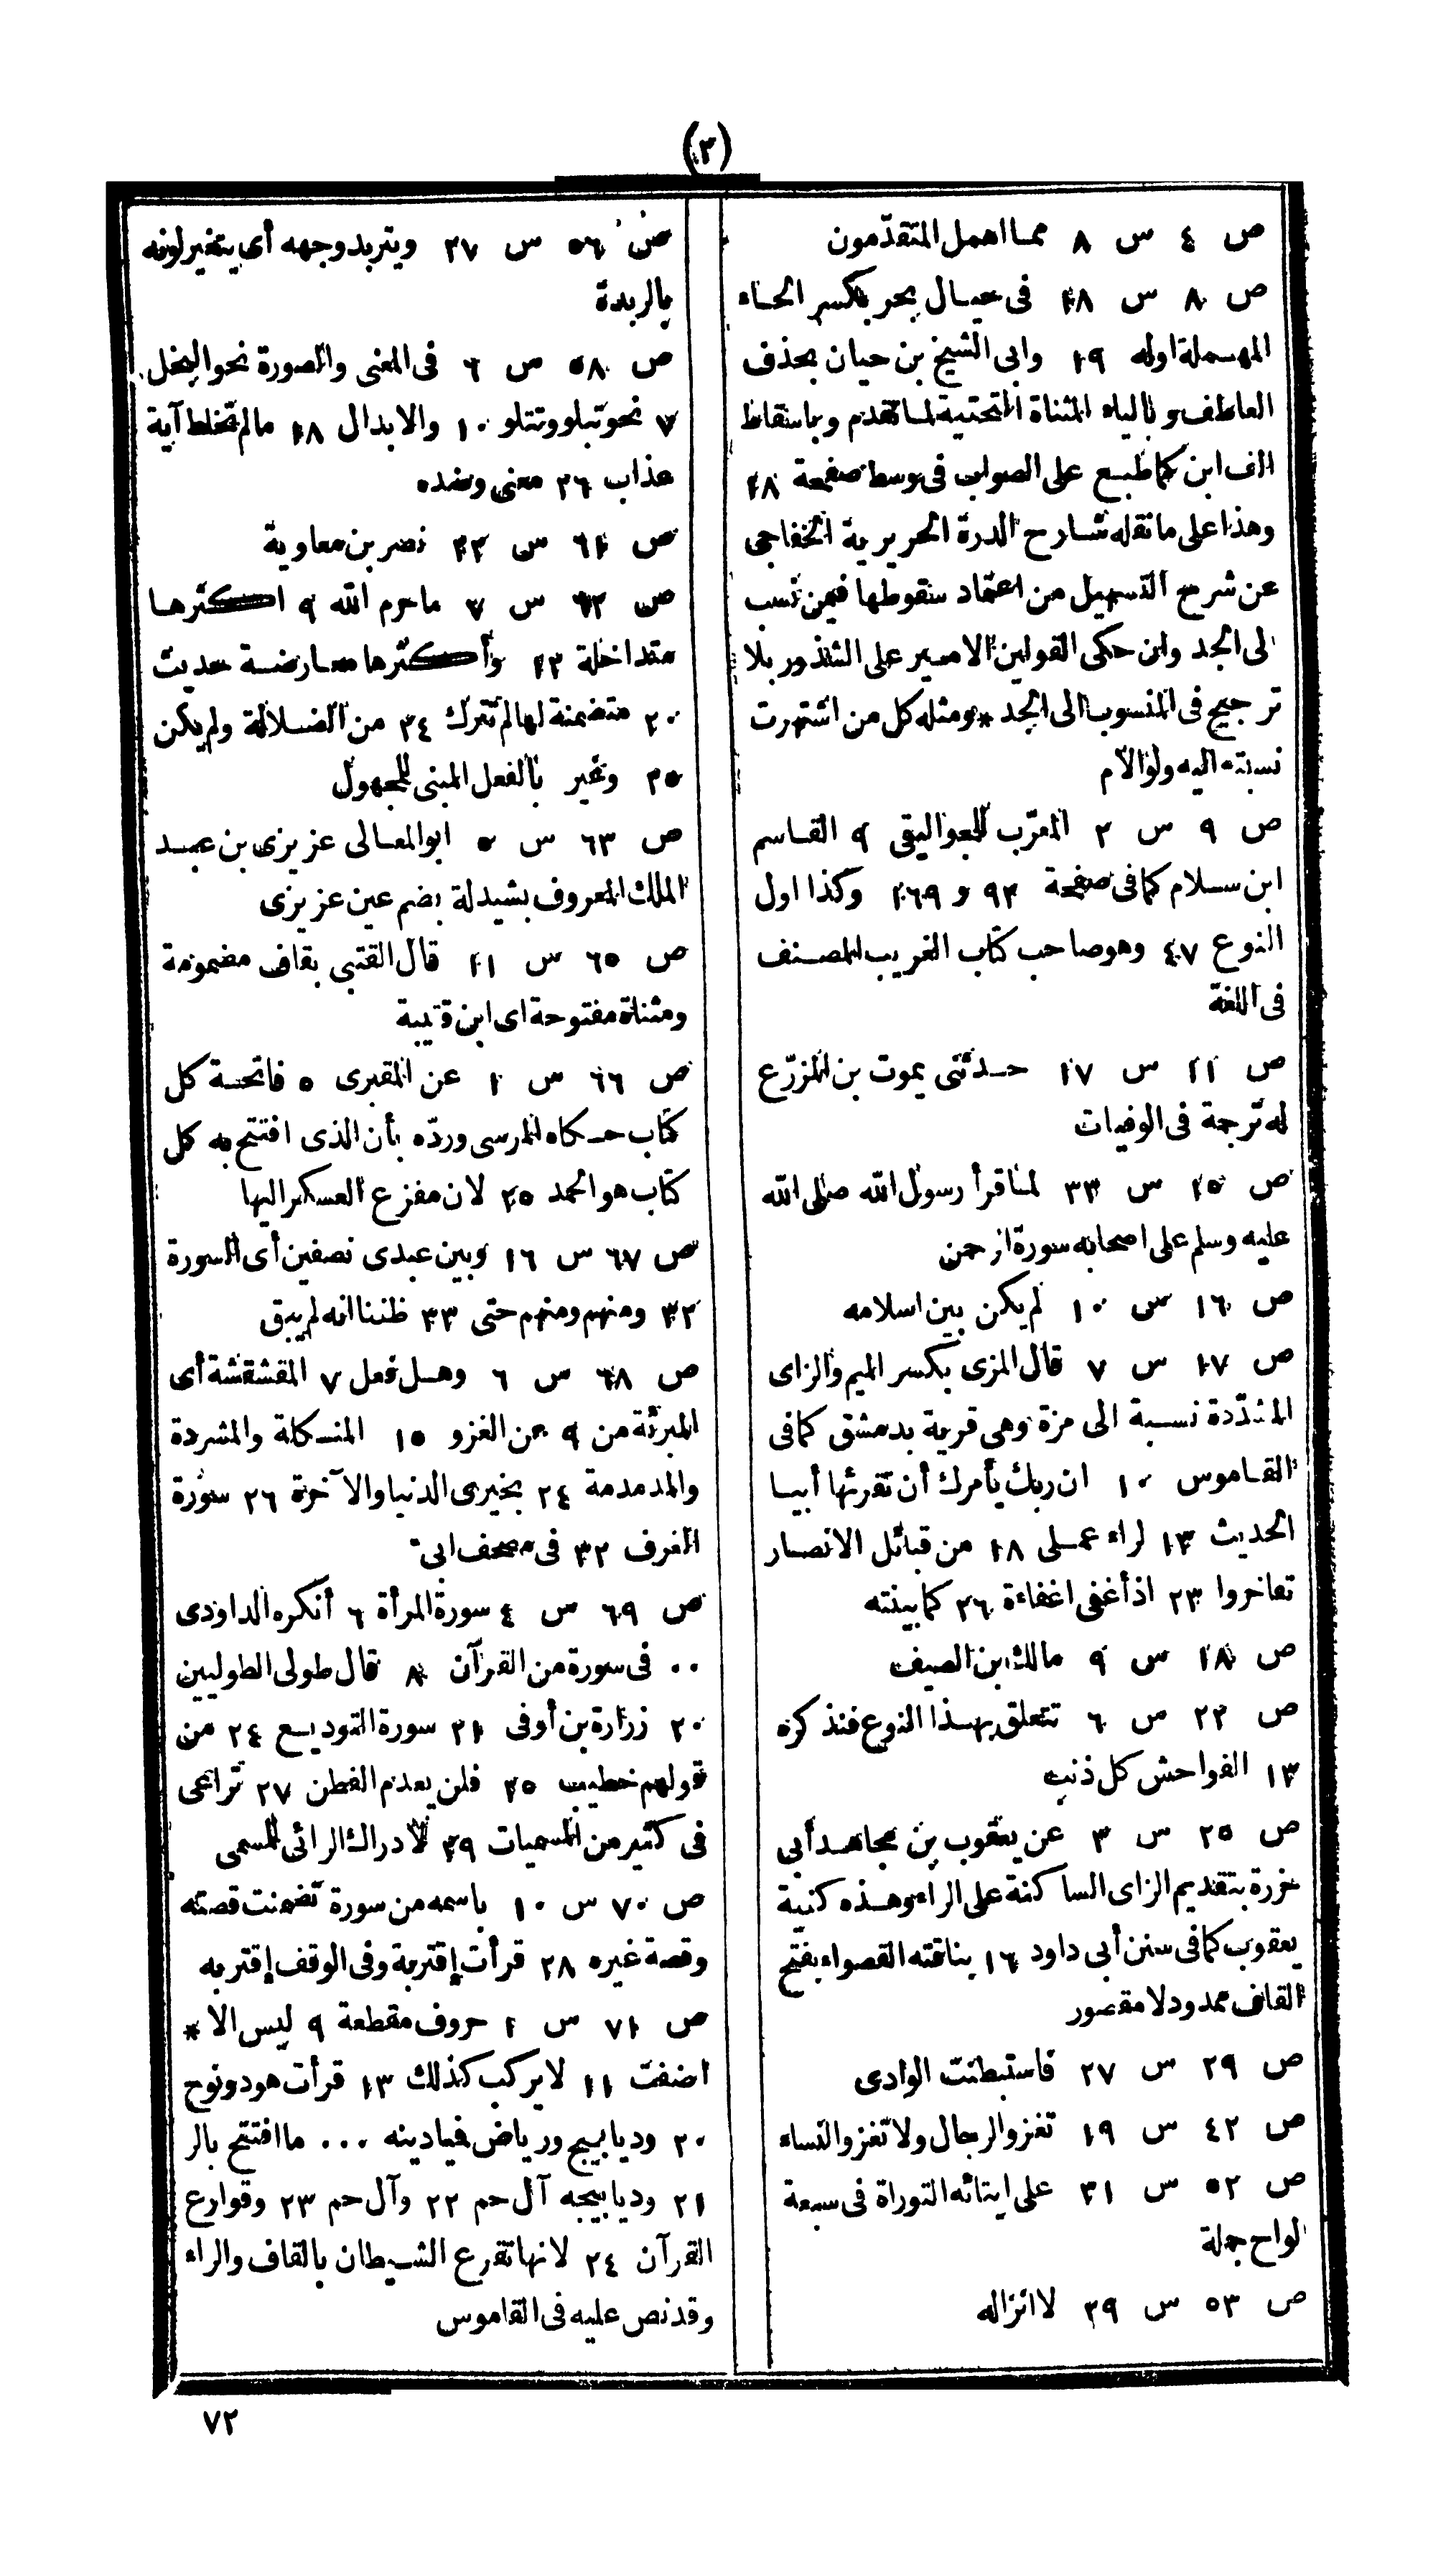 (٢)
ص ٤ س ٨ مما اهمل المتقدّمون
ص ٨ س ١٨ فى عيال بحر بكسر الحاء
المهملة اوله ١٩ وابى الشيخ بن حيان بحذف
العاطف وبالياء المثناة التحتية لما تقدم وباسقاط
الف ابن كما طبع على الصواب فى وسط صفحة ١٨
وهذا على ما نقله شارح الدرة الحريرية الخفاجى
عن شرح التسهيل من اعتماد سقوطها فيمن نسب
الى الجد وان حكى القولين الامير على الشذور بلا
ترجيح فى المنسوب الى الجد * ومثله كل من اشتهرت
نسبته اليه ولو الام
ص ٩ س ٢ المعرّب للجواليقى ٩ القاسم
ابن سلام كما فى صفحة ٩٣ و ١٦٩ وكذا اول
النوع ٤٧ وهو صاحب كتاب الغريب المصنف
فى اللغة
ص ١١ س ١٧ حدثنى يموت بن المزرّع
له ترجمة فى الوفيات
ص ١٥ س ٣٣ لما قرأ رسول الله صلى الله
عليه وسلم على اصحابه سورة الرحمن
ص ١٦ س ١٠ لم يكن بين اسلامه
ص ١٧ س ٧ قال المزى بكسر الميم والزاى
المشدّدة نسبة الى مزة وهى قرية بدمشق كما فى
القاموس ١٠ ان ربك يأمرك أن تقرئها أبيا
الحديث ١٣ لراء عملى ١٨ من قبائل الانصار
تفاخروا ٢٣ اذ أغفى اغفاءة ٢٦ كما بينته
ص ١٨ س ٩ مالك بن الصيف
ص ٢٢ س ٦ تتعلق بهذا النوع فنذكره
١٣ الفواحش كل ذنب
ص ٢٥ س ٣ عن يعقوب بن مجاهد أبى
حزرة بتقديم الزاى الساكنة على الراء وهذه كنية
يعقوب كما فى سنن أبى داود ١٦ بناقته القصواء بفتح
القاف ممدود لا مقصور
ص ٢٩ س ٢٧ فاستبطنت الوادى
ص ٤٢ س ١٩ تغزو الرجال ولا تغزو النساء
ص ٥٢ س ٣١ على ايتائه التوراة فى سبعة
الواح جملة
ص ٥٣ س ٢٩ لا انزاله
ص ٥٦ س ٢٧ ويتربد وجهه أى يتغير لونه
بالربدة
ص ٥٨ س ٦ فى المعنى والصورة نحو البخل
٧ نحو تبلو وتتلو ١٠ والابدال ١٨ ما لم تختلط آية
عذاب ٢٦ معنى وضده
ص ٦١ س ٢٢ نصر بن معاوية
ص ٦٢ س ٧ ما حرم الله ٩ اكثرها
متداخلة ١٢ وأكثرها معارضة حديث
٢٠ متضمنة لها لم تترك ٢٤ من الضلالة ولم يكن
٢٥ وغير بالفعل المبنى للمجهول
ص ٦٣ س ٥ ابو المعالى عزيزى بن عبد
الملك المعروف بشيدلة بضم عين عزيزى
ص ٦٥ س ١١ قال القتبى بقاف مضمومة
ومثناة مفتوحة اى ابن قتيبة
ص ٦٦ س ١ عن المقبرى ٥ فاتحة كل
كتاب حكاه المرسى وردّه بأن الذى افتتح به كل
كتاب هو الحمد ٢٥ لان مفزع العسكر اليها
ص ٦٧ س ١٦ وبين عبدى نصفين أى السورة
٣٢ ومنهم ومنهم حتى ٣٣ ظننا انه لم يبق
ص ٦٨ س ٦ وهل فعل ٧ المقشقشة أى
المبرئة من ٩ عن الغزو ١٥ المنكلة والمشردة
والمدمدمة ٢٤ بخيرى الدنيا والآخرة ٢٦ سورة
الغرف ٣٢ فى مصحف ابى
ص ٦٩ س ٤ سورة المرأة ٦ أنكره الداودى
.. فى سورة من القرآن ٨ قال طولى الطوليين
٢٠ زرارة بن أوفى ٢١ سورة التوديع ٢٤ من
قولهم خطيب ٢٥ فلن يعدم الفطن ٢٧ تراعى
فى كثير من المسميات ٢٩ لادراك الرائى للمسمى
ص ٧٠ س ١٠ باسمه من سورة تضمنت قصته
وقصة غيره ٢٨ قرأت إقتربة وفى الوقف إقتربه
ص ٧١ س ١ حروف مقطعة ٩ ليس الا *
اضفت ١١ لا يركب كذلك ١٣ قرأت هود ونوح
٢٠ وديابيج ورياض فميادينه ... ما افتتح بالر
٢١ وديابيجه آل حم ٢٢ وآل حم ٢٣ وقوارع
القرآن ٢٤ لانها تقرع الشيطان بالقاف والراء
وقد نص عليه فى القاموس
٧٢